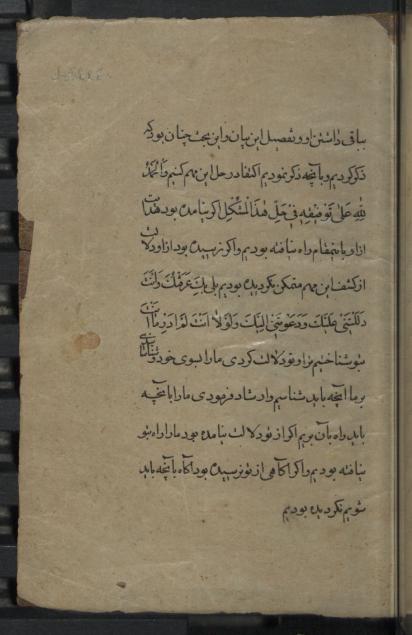 بباقی داشتن او و تفصیل این بیان و این بحث چنان بود که
ذکر کردیم و بآنچه ذکر نمودیم اکتفا در حل این مهم کنیم وَالحَمدُ
لِلّهِ عَلیٰ تَوفیقِهِ فی حَلِّ هٰذَا المُشکِلِ اکر نیامده بود هدایت
از او باینمقام راه نیافته بودیم و اکر نرسیده بود از او دلالت
از کشف این مهم متمکن نکردیده بودیم بلی بِكَ عَرَفتُكَ وَاَنتَ
دَلَلتَنی عَلَیكَ وَدَعَوتَنی اِلَیكَ وَلَولا اَنتَ لَم اَدرِ ما اَنتَ
بتو شناختیم ترا و تو دلالت کردی ما را بسوی خود و
بر ما آنچه باید شناسیم و ارشاد فرمودی ما را بآنچه
باید راه بآن بریم اکر از تو دلالت نیامده بود ما را راه بتو
نیافته بودیم و اکر آکاهی از تو نرسیده بود آکاه بآنچه باید
شویم نکردیده بودیم